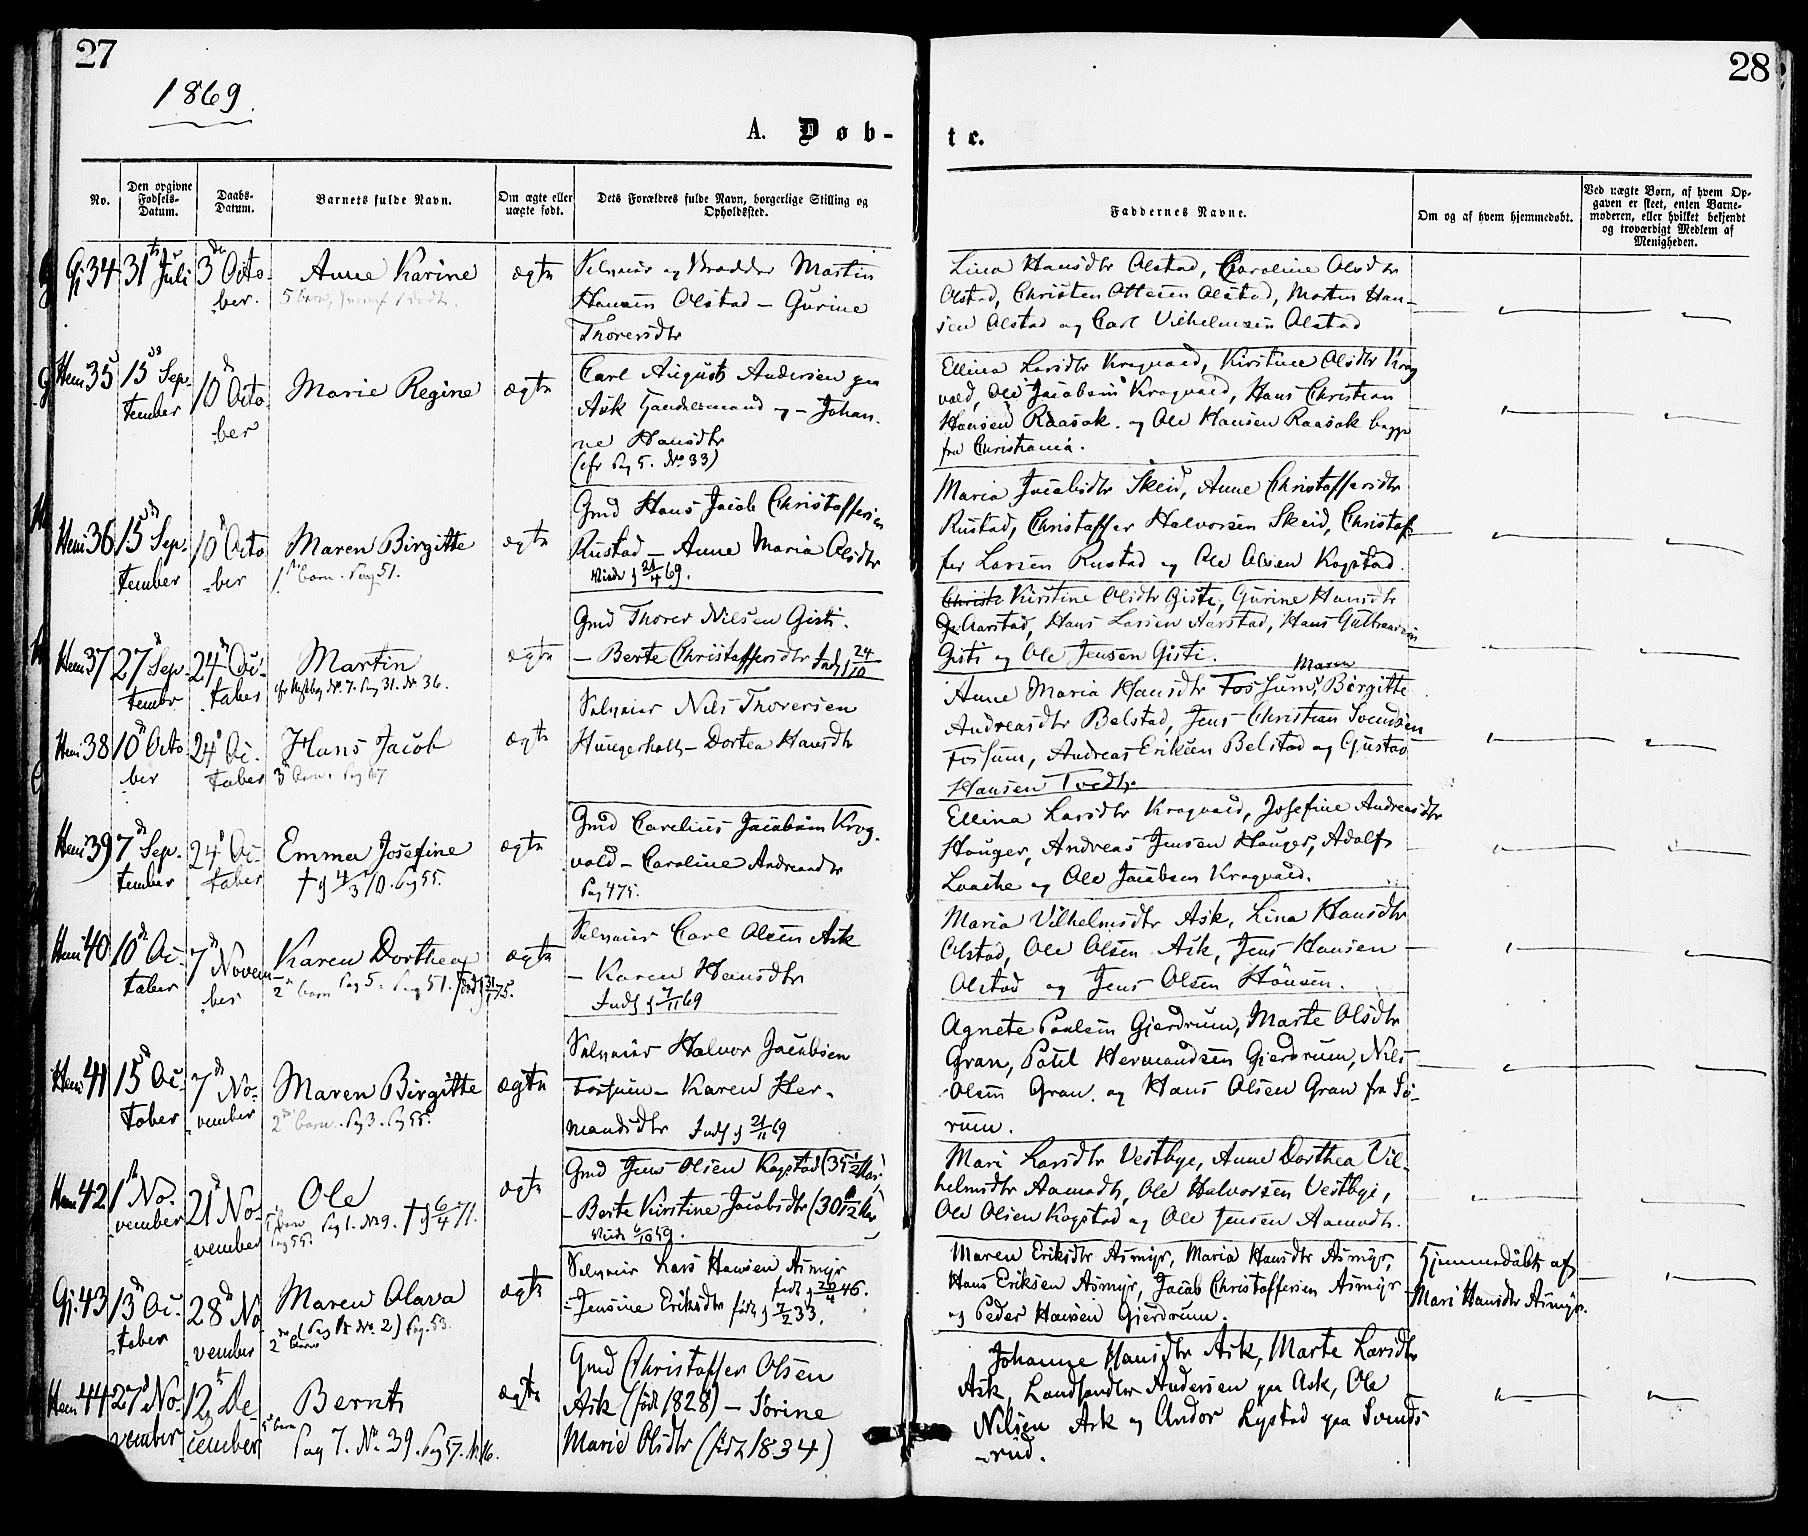 27
28
1869.
A. Døb-
te.
No.
Den opgivne Fødsels-Datum.
Daabs-Datum.
Barnets fulde Navn.
Om ægte eller uægte født.
Dets Forældres fulde Navn, borgerlige Stilling og Opholdssted.
Faddernes Navne.
Om og af hvem hjemmedøbt.
Ved uægte Børn, af hvem Opgaven er skeet, enten Barnemoderen, eller hvilket bekjendt og troværdigt Medlem af Menigheden.
Gj 34 31te Juli 3de Octo-
ber.
Anne Karine
ægte
Selveier og Martin
Hansen Olstad – Gurine
Thorersdtr
Lina Hansdtr Olstad, Caroline Olsdtr
Olstad, Christen Ottesen Olstad, Morten Han-
sen Olstad og Carl Vilhelmsen Olstad
Hem 35 15de Sep-
tember
10de Octo
ber
Marie Regine
ægte
Carl August Andersen paa
Ask Handelsmand og – Johan-
ne Hansdtr
(cfr Pag 5. No 33)
Ellina Larsdtr Kragvald, Kirstine Olsdtr Krog
vald, Ole Jacobsen Kragvald, Hans Christian
Hansen Raasok. og Ole Hansen Raasok begge
fra Christiania.
Hem 36 15de Sep-
tember
10de Octo
ber
Maren Birgitte
1ste barn. Pag 51.
ægte
Gmd Hans Jacob Christoffersen
Rustad – Anne Maria Olsdtr
Viede d 21/4 69.
Maria Jacobsdtr Skeid, Anne Christoffersdtr
Rustad, Christoffer Halvorsen Skeid, Christof-
fer Larsen Rustad og Ole Olsen Kogstad.
Hem 37 27de Sep-
tembr
24de Oc-
tober
Martin
ægte
Gmd Thorer Nilsen Gisti.
– Berte Christoffersdtr Inds d 24/10
Kirstine Olsdtr Gisti, Gurine Hansdtr
Aarstad, Hans Larsen Aarstad, Hans Gulbrandsen
Gisti og Ole Jensen Gisti.
Hem 38 10de Octo
ber
24de Oc-
tober
Hans Jacob
3de barn. Pag 67
ægte
Selveier Nils Thorersen
Hungerholt – Dortea Hansdtr
Maren
Anne Maria Hansdtr Fossum, Birgitte
Andreasdtr Belstad, Jens Christian Svendsen
Fossum, Andreas Eriksen Belstad og Gustav
Hansen Tvedtr
Hem 39 7de Sep-
tember
24de Oc-
tober
Emma Josefine
† d 4/3 70. Pag 55.
ægte
Gmd Carelius Jacobsen Krog-
vold – Caroline Andreasdtr
Pag 475.
Ellina Larsdtr Kragvald, Josefine Andreasdtr
Hauger, Andreas Jensen Hauger, Adolf
og Ole Jacobsen Kragvald.
Hem 40 10de Oc-
tober
7de Novem-
ber
Karen Dorthea
2den barn Pag 5. Pag 51.
ægte
Selveier Carl Olsen Ask
– Karen Hansdtr
Inds d 7/11 69
Maria Vilhelmsdtr Ask, Lina Hansdtr
Olstad, Ole Olsen Ask, Jens Hansen
Olstad og Jens Olsen Hönsen.
Hem 41 15de Oc-
tober
7de No-
vember
Maren Birgitte
2det barn. Pag 3. Pag 55.
ægte
Selveier Halvor Jacobsen
Fossum – Karen Her-
mandsdtr Inds d 21/11 69
Agnete Paulsen Gjerdrum, Marte Olsdtr
Gran, Poul Hermandsen Gjerdrum, Nils
Olsen Gran. og Hans Olsen Gran fra Sö-
rum.
Hem 42 1ste No-
vember
21de No-
vember
Ole
Pag 1. No 9. † d 6/4 71.
Pag 55.
ægte
Gmd Jens Olsen Kogstad (35 1/2 Aar)
– Berte Kirstine Jacobsdtr (30 9/12 Aar)
Viede 6/10 59.
Mari Larsdtr Vestbye, Anne Dorthea Vil-
helmsdtr Aamodt, Ole Halvorsen Vestbye,
Ole Olsen Kogstad og Ole Jensen Aamodt.
Gj. 43 13de Oc-
tober
28de No
vember
Maren Olava
2det barn (Pag No. 2) Pag. 53.
ægte
Selveier Lars Hansen Asmyr
født d 26/4 46.
– Jensine Eriksdtr født d 7/2 33.
Maren Eriksdtr Asmyr, Maria Hansdtr Asmyr,
Hans Eriksen Asmyr, Jacob Christoffersen Asmyr
og Peder Hansen Gjerdrum.
Hjemmedöbt af
Mari Hansdtr Asmyr.
Hem 44 27de No-
vember
12te De
cember
Bernt
5te barn
Pag 7. No. 39. Pag 57.
ægte
Gmd Christoffer Olsen
Ask (født 1828) – Sörine
Marie Olsdtr (född 1834)
Johanne Hansdtr Ask, Marte Larsdtr
Ask, Landhandler Andersen paa Ask, Ole
Nilsen Ask og Andor Lystad paa Svends
rud.